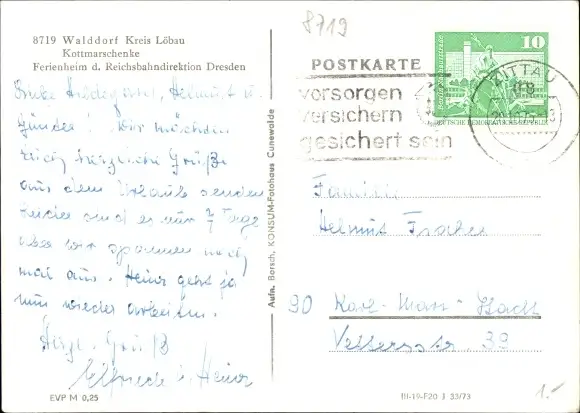 8719
8719 Walddorf Kreis Löbau
Kottmarschenke
Ferienheim d. Reichsbahndirektion Dresden
Liebe Hildegard, Helmut u.
Wir möchten
Euch herzliche Grüße
aus dem Urlaub senden
Leider sind es nur 7 Tage
aber wir spannen noch
mal aus. Heinz geht ja
nun wieder arbeiten.
Herzl. Grüße
Elfriede u. Heinz
EVP M 0,25
Aufn. Borsch, KONSUM-Fotohaus Cunewalde
POSTKARTE
vorsorgen
versichern
gesichert sein
10
DEUTSCHE DEMOKRATISCHE REPUBLIK
ZITTAU
Familie
Helmut Fischer
90 Karl-Marx-Stadt
39
BI-19-F20 J 33/73
1.-